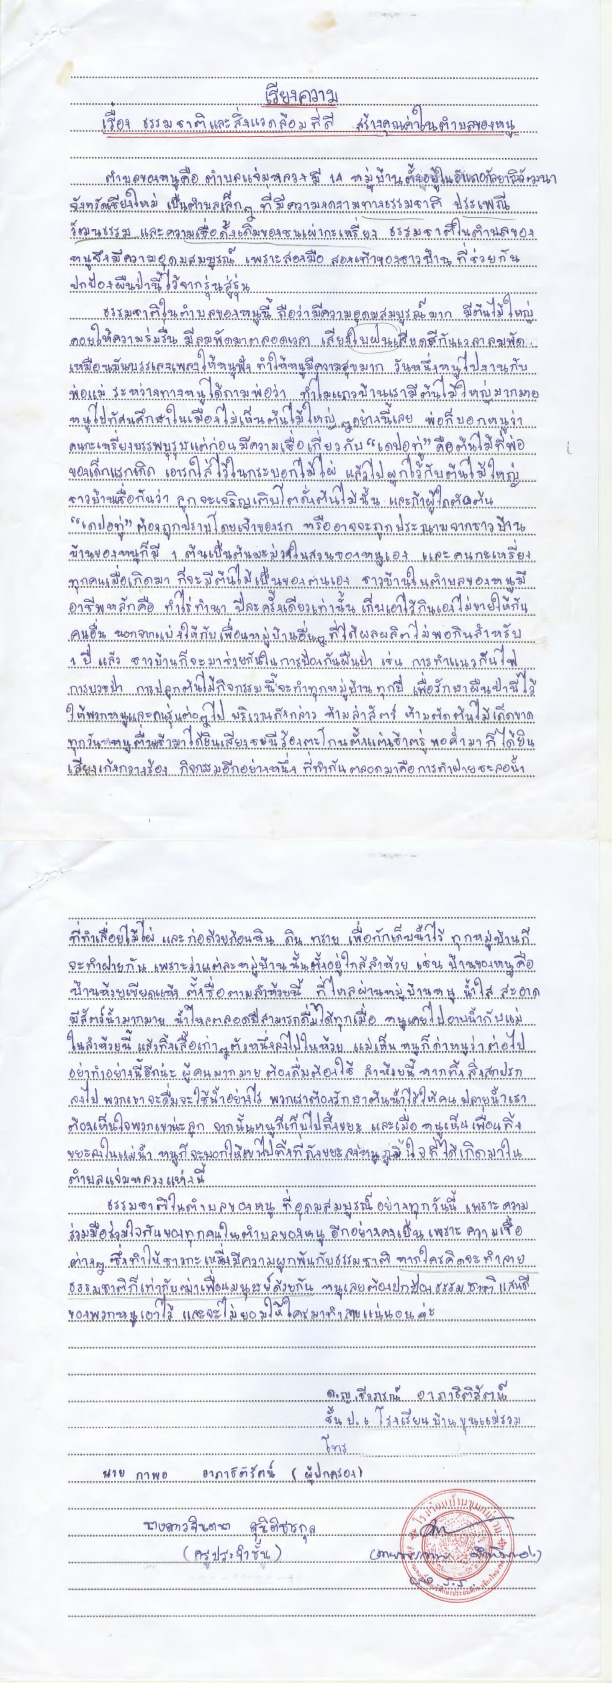 เรียงความ
เรื่อง ธรรมชาติและสิ่งแวดล้อมที่ดี สร้างคุณค่าในตำบลของหนู
ตำบลของหนูคือ ตำบลแจ่มหลวงมี 14 หมู่บ้านตั้งอยู่ในอำเภอกัลยาณิวัฒนา
จังหวัดเชียงใหม่ เป็นตำบลเล็กๆ ที่มีความงดงามทางธรรมชาติ ประเพณี
วัฒนธรรม และความเชื่อดั้งเดิมของชนเผ่ากะเหรี่ยง ธรรมชาติในตำบลของ
หนูจึงมีความอุดมสมบูรณ์ เพราะสองมือ สองเท้าของชาวบ้าน ที่ช่วยกัน
ปกป้องผืนป่านี้ไว้จากรุ่นสู่รุ่น
ธรรมชาติในตำบลของหนูนี้ ถือว่ามีความอุดมสมบูรณ์มาก มีต้นไม้ใหญ่
คอยให้ความร่มรื่น มีลมพัดมาตลอดเวลา เสียงใบฝนเสียดสีกันเวลาลมพัด
เหมือนมันบรรเลงเพลงให้หนูฟัง ทำให้หนูมีความสุขมาก วันหนึ่งหนูไปงานกับ
พ่อแม่ ระหว่างทางหนูได้ถามพ่อว่า ทำไมแถวบ้านเรามีต้นไม้ใหญ่มากมาย
หนูไปทัศนศึกษาในเมืองไม่เห็นต้นไม้ใหญ่ๆอย่างนี้เลย พ่อก็บอกหนูว่า
คนกะเหรี่ยงบรรพบุรุษแต่ก่อนมีความเชื่อเกี่ยวกับ "เดปอทู่" คือต้นไม้ที่พ่อ
ของเด็กแรกเกิด เอารกใส่ไว้ในกระบอกไม้ไผ่ แล้วไปผูกไว้กับต้นไม้ใหญ่
ชาวบ้านเชื่อกันว่า ลูกจะเจริญเติบโตดั่งต้นไม้นั้น และถ้าผู้ใดตัดต้น
"เดปอทู่" ต้องถูกปรับโดยเจ้าของรก หรืออาจจะถูกประณามจากชาวบ้าน
บ้านของหนูก็มี 1 ต้นเป็นต้นมะม่วงในสวนของหนูเอง และคนกะเหรี่ยง
ทุกคนเมื่อเกิดมา ก็จะมีต้นไม้เป็นของตนเอง ชาวบ้านในตำบลของหนูมี
อาชีพหลักคือ ทำไร่ทำนา ปีละครั้งเดียวเท่านั้น เก็บเอาไว้กินเองไม่ขายให้กับ
คนอื่น นอกจากแบ่งให้กับเพื่อนหมู่บ้านอื่นๆที่ได้ผลผลิตไม่พอกินสำหรับ
1 ปี แล้ว ชาวบ้านก็จะมาช่วยกันในการป้องกันผืนป่า เช่น การทำแนวกันไฟ
การบวชป่า การปลูกต้นไม้กิจกรรมนี้จะทำทุกหมู่บ้าน ทุกปี เพื่อรักษาผืนป่านี้ไว้
ให้พวกหนูและคนรุ่นต่อๆไป บริเวณดังกล่าว ห้ามล่าสัตว์ ห้ามตัดต้นไม้เด็ดขาด
ทุกวันหนูตื่นเช้ามาได้ยินเสียงชะนีร้องตะโกนตั้งแต่เช้าตรู่ พอค่ำมาก็ได้ยิน
เสียงเก้งกวางร้อง กิจกรรมอีกอย่างหนึ่ง ที่ทำกันตลอดมาคือการทำฝายชะลอน้ำ
ที่ทำเสื่อยไม้ไผ่ และก่อด้วยก้อนหิน ดิน ทราย เพื่อกักเก็บน้ำไว้ ทุกหมู่บ้านก็
จะทำฝายกัน เพราะว่าแต่ละหมู่บ้านนั้นตั้งอยู่ใกล้ลำห้วย เช่น บ้านของหนูคือ
บ้านห้วยเขียดแห้ง ตั้งชื่อตามลำห้วยนี้ ที่ไหลผ่านหมู่บ้านหนู น้ำใส สะอาด
มีสัตว์น้ำมากมาย น้ำไหลตลอดปีสามารถดื่มได้ทุกเมื่อ หนูเคยไปอาบน้ำกับแม่
ในลำห้วยนี้ แล้วทิ้งเสื้อเก่าๆตัวหนึ่งลงไปในห้วย แม่เห็น หนูก็ด่าหนูว่าต่อไป
อย่าทำอย่างนี้อีกนะ ผู้คนมากมาย ต้องดื่มต้องใช้ ลำห้วยนี้ หากทิ้งสิ่งสกปรก
ลงไป พวกเขาจะดื่มจะใช้น้ำอย่างไร พวกเราต้องรักษาต้นน้ำไว้ให้คน ปลายน้ำเรา
ต้องเห็นใจพวกเขานะลูก จากนั้นหนูก็เก็บไปทิ้งขยะ และเมื่อ หนูเห็นเพื่อนทิ้ง
ขยะลงในแม่น้ำ หนูก็จะบอกให้เขาไปทิ้งที่ถังขยะ หนูภูมิใจที่ได้เกิดมาใน
ตำบลแจ่มหลวงแห่งนี้
ธรรมชาติในตำบลของหนู ที่อุดมสมบูรณ์อย่างทุกวันนี้ เพราะความ
ร่วมมือร่วมใจกันของทุกคนในตำบลของหนู อีกอย่างคงเป็นเพราะความเชื่อ
ต่างๆ ซึ่งทำให้ชาวกะเหรี่ยงมีความผูกพันกับธรรมชาติ หากใครคิดจะทำลาย
ธรรมชาติก็เท่ากับฆ่าเพื่อนมนุษย์ด้วยกัน หนูเลยต้องปกป้องธรรมชาติ แสนดี
ของพวกหนูเอาไว้ และจะไม่ยอมให้ใครมาทำลายแน่นอนค่ะ
ด.ญ. อาภาธิติรัตน์
ชั้น ป.6 โรงเรียนบ้านขุนแม่รวม
โทร
นาย กาพอ อาภาธิติรัตน์ (ผู้ปกครอง)
นางสาวจินตนา
(ครูประจำชั้น)